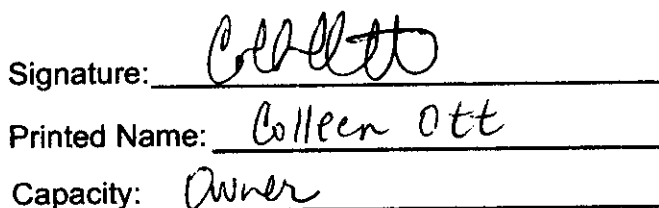 Signature:
Printed Name: Colleen Ott
Capacity: Owner